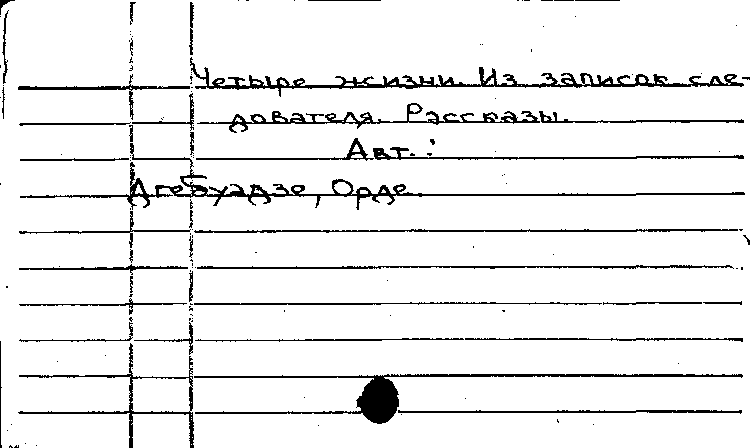 Четыре жизни. Из записок сле-
дователя. Рассказы.
Авт.:
Дгебуадзе, Орде.